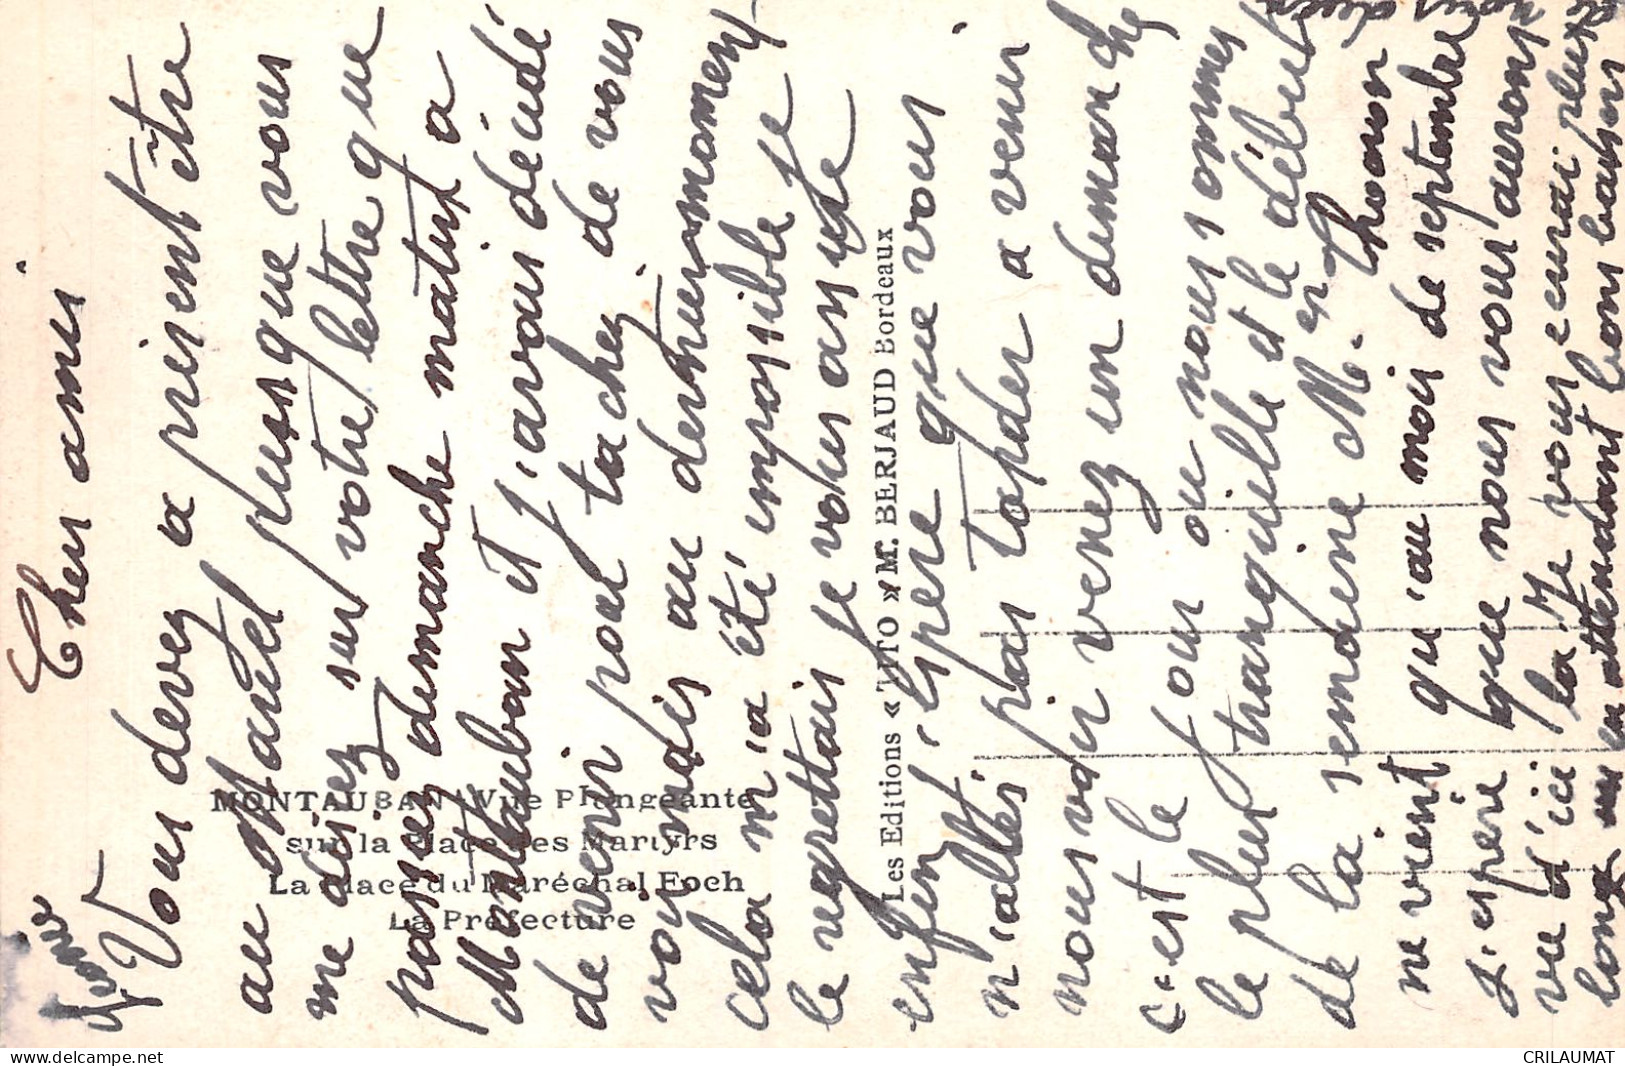 Cher ami
Vous devez a présent être
au puisque vous
me disiez sur votre lettre que
passez dimanche matin a
Montauban et j'avais décidé
de venir pour tachez de vous
voir mais au dernier moment
cela m'a été impossible je
le regrettais je vous assure
enfin j'espere que vous
n'allés pas tarder a venir
nous voir venez un dimanche
c'est le jour ou nous sommes
le plus tranquille et le début
de la semaine M. et Thouron
ne vient qu'au mois de septembre
J'espère que nous vous aurons
vu d'ici la Je vous envoi plus
long en attendant bons baisers
MONTAUBAN - Vue Plongeante
sur la Place des Martyrs
La Place du Maréchal Foch
La Préfecture
Les Editions « TITO » M. BERJAUD Bordeaux
www.delcampe.net
CRILAUMAT